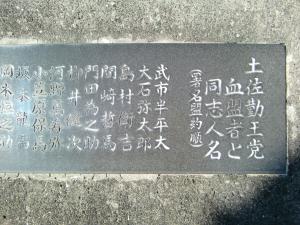 土佐勤王党
血盟者と
同志人名
(署名盟約順)
武市半平太
大石弥太郎
島村衛吉
間崎哲馬
門田為之助
柳井健次
河野萬寿弥
小笠原保馬
坂本龍馬
岡本恒之助